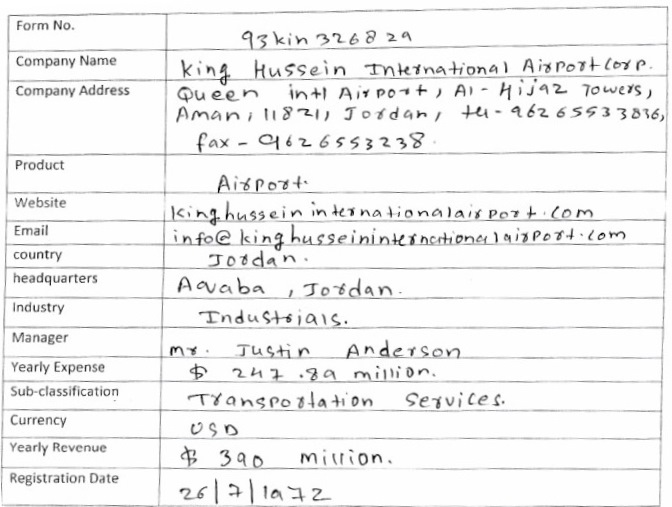 Form No. 93kin326829
Company Name King Hussein International Airport Corp.
Company Address Queen intl Airport, Al-Hijaz Towers,
Aman, 11821, Jordan, tel-962 65533836,
fax - 9626553238.
Product Airport.
Website kinghusseininternationalairport.com
Email info@kinghusseininternationalairport.com
country Jordan.
headquarters Aqaba, Jordan.
Industry Industrials.
Manager mr. Justin Anderson
Yearly Expense $ 247.89 million.
Sub-classification Transportation Services.
Currency USD
Yearly Revenue $ 390 million.
Registration Date 26/7/1972